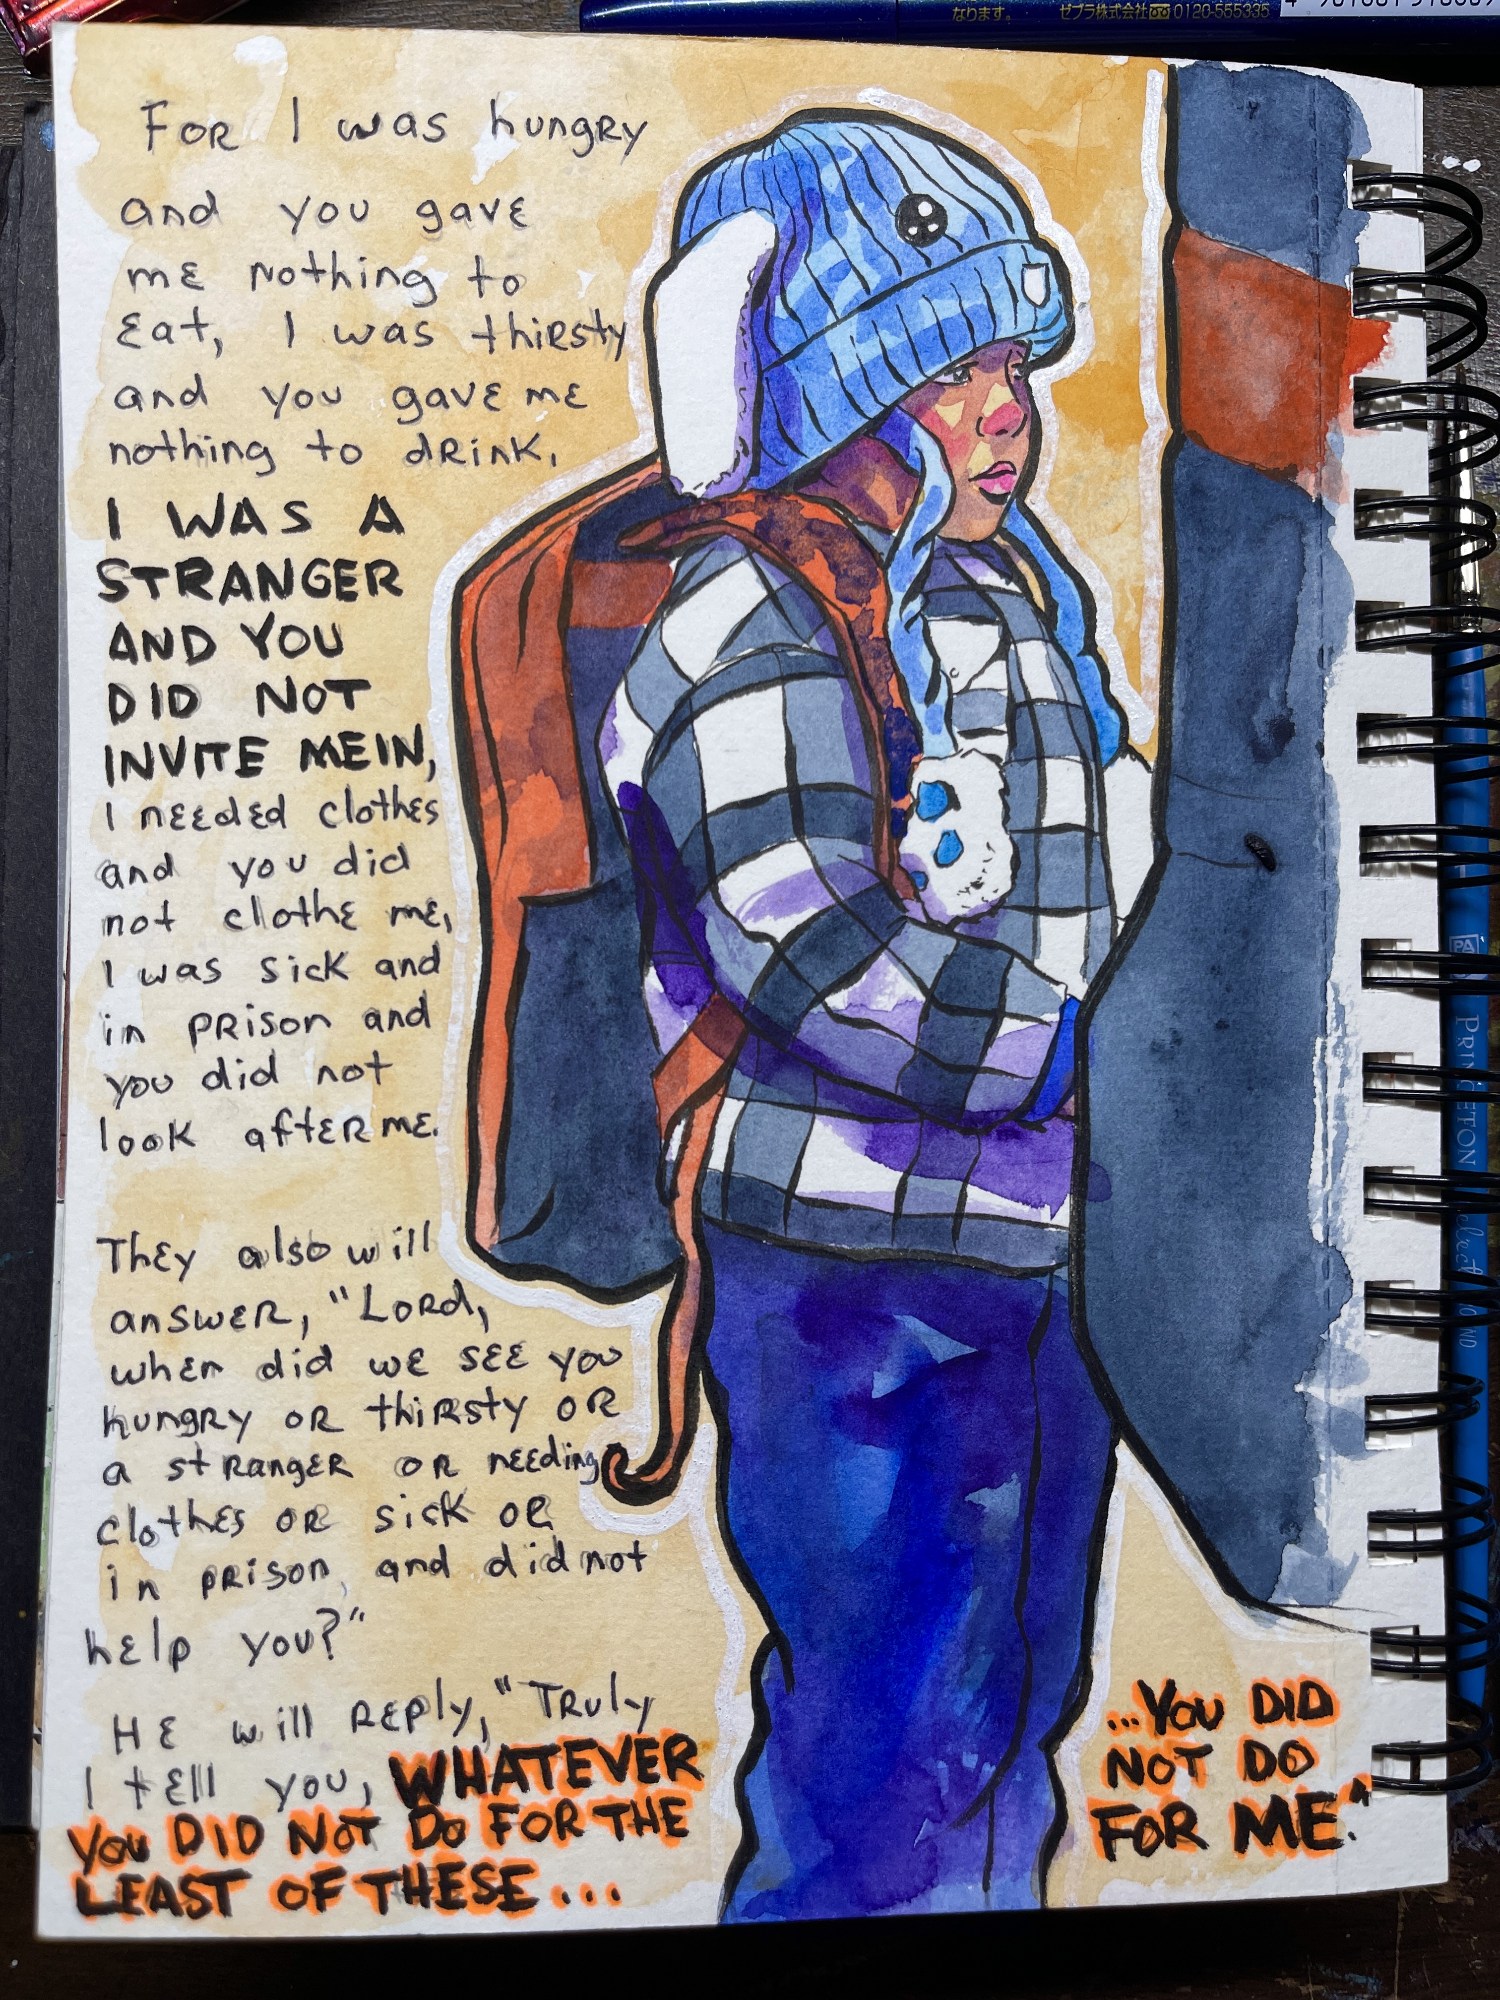 なります。
ゼブラ株式会社 0120-555335
For I was hungry
and you gave
me nothing to
eat, I was thirsty
and you gave me
nothing to drink,
I WAS A
STRANGER
AND YOU
DID NOT
INVITE ME IN,
I needed clothes
and you did
not clothe me,
I was sick and
in prison and
you did not
look after me.
They also will
answer, "Lord,
when did we see you
hungry or thirsty or
a stranger or needing
clothes or sick or
in prison, and did not
help you?"
He will reply, "Truly
I tell you, WHATEVER
YOU DID NOT DO FOR THE
LEAST OF THESE...
...YOU DID
NOT DO
FOR ME."
PRINCETON